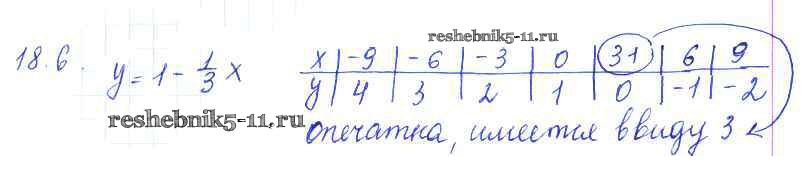 reshebnik5-11.ru
18.6. y = 1 - 1/3 x
x | -9 | -6 | -3 | 0 | 31 | 6 | 9
y | 4 | 3 | 2 | 1 | 0 | -1 | -2
reshebnik5-11.ru
опечатка, имеется ввиду 3